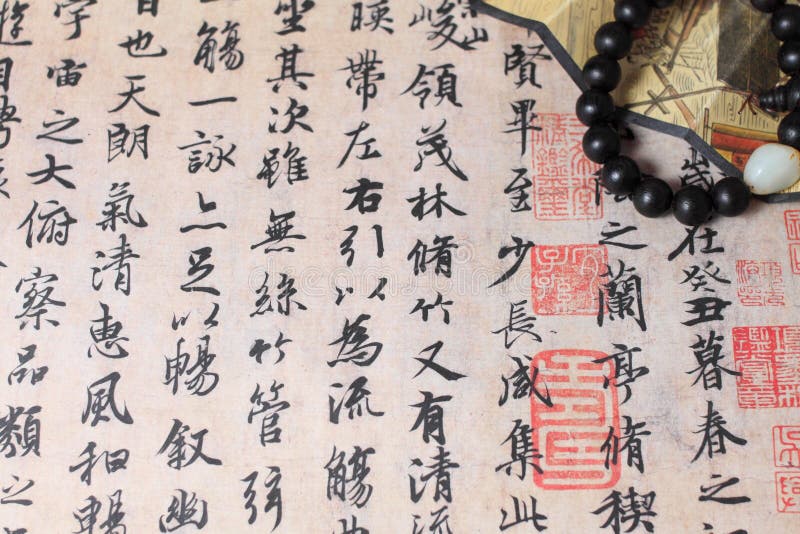 歲在癸丑暮春之
之蘭亭脩禊
賢畢至少長咸集此
峻領茂林脩竹又有清流
暎帶左右引以為流觴
坐其次雖無絲竹管弦
觴一詠亦足以暢敘幽
日也天朗氣清惠風和暢
宇宙之大俯察品類之
遊目騁懷